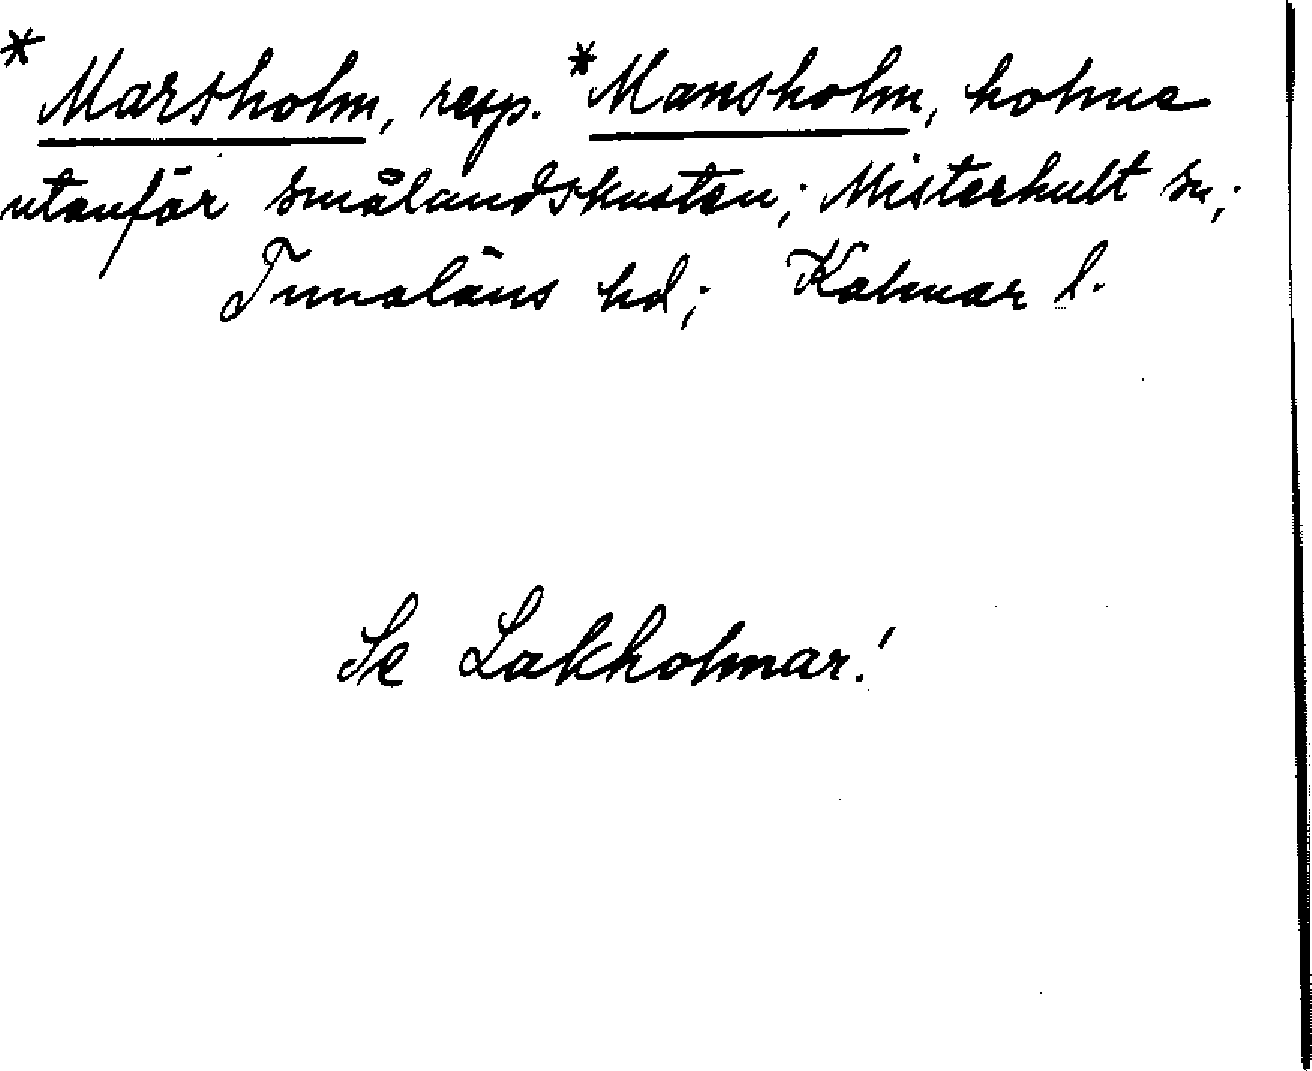 *Marsholm, resp. *Mansholm, holme
utanför smålandskusten; Misterhult sn;
Tunaläns hd; Kalmar l.
Se Lakholmar!